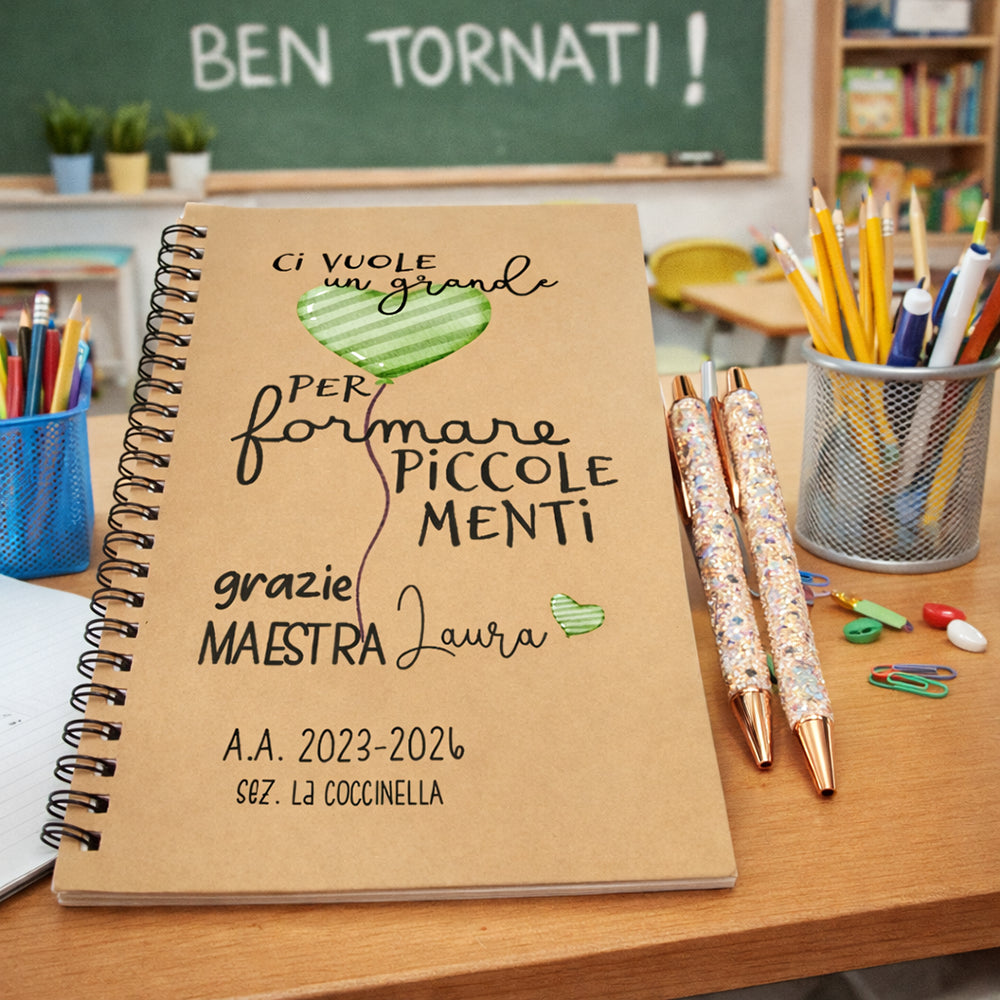 BEN TORNATI!
Ci VUOLE
un grande
PER
formare
PiCCOLE
MENTi
grazie
MAESTRA Laura
A.A. 2023-2026
sez. La COCCINELLA